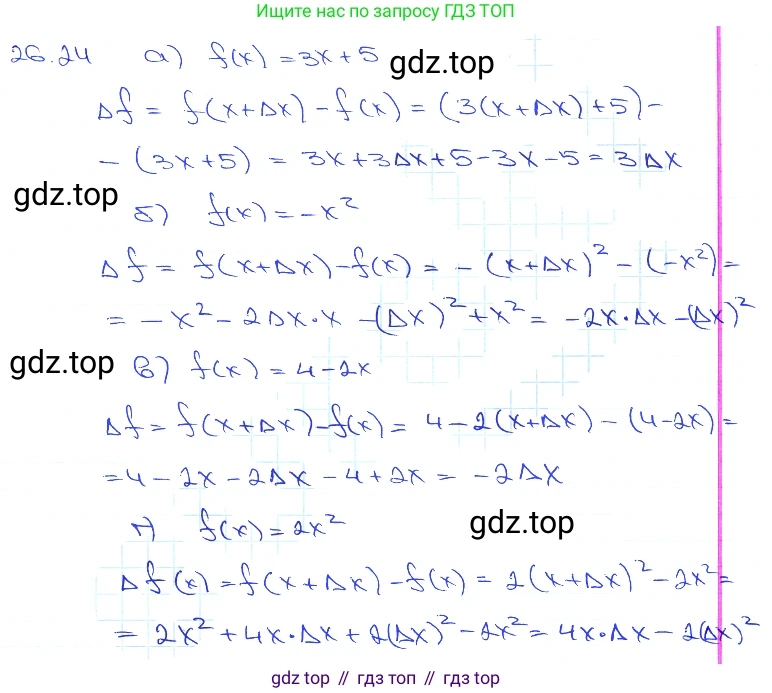 Ищите нас по запросу ГДЗ ТОП
26.24 а) f(x) = 3x + 5 gdz.top
Δf = f(x+Δx) - f(x) = (3(x+Δx)+5) -
- (3x+5) = 3x+3Δx+5-3x-5 = 3Δx
gdz.top б) f(x) = -x²
Δf = f(x+Δx) - f(x) = -(x+Δx)² - (-x²) =
= -x² - 2Δx·x - (Δx)² + x² = -2x·Δx - (Δx)²
gdz.top в) f(x) = 4-2x
Δf = f(x+Δx) - f(x) = 4-2(x+Δx) - (4-2x) =
= 4 - 2x - 2Δx - 4 + 2x = -2Δx
г) f(x) = 2x² gdz.top
Δf(x) = f(x+Δx) - f(x) = 2(x+Δx)² - 2x² =
= 2x² + 4x·Δx + 2(Δx)² - 2x² = 4x·Δx - 2(Δx)²
gdz top // гдз топ // gdz top